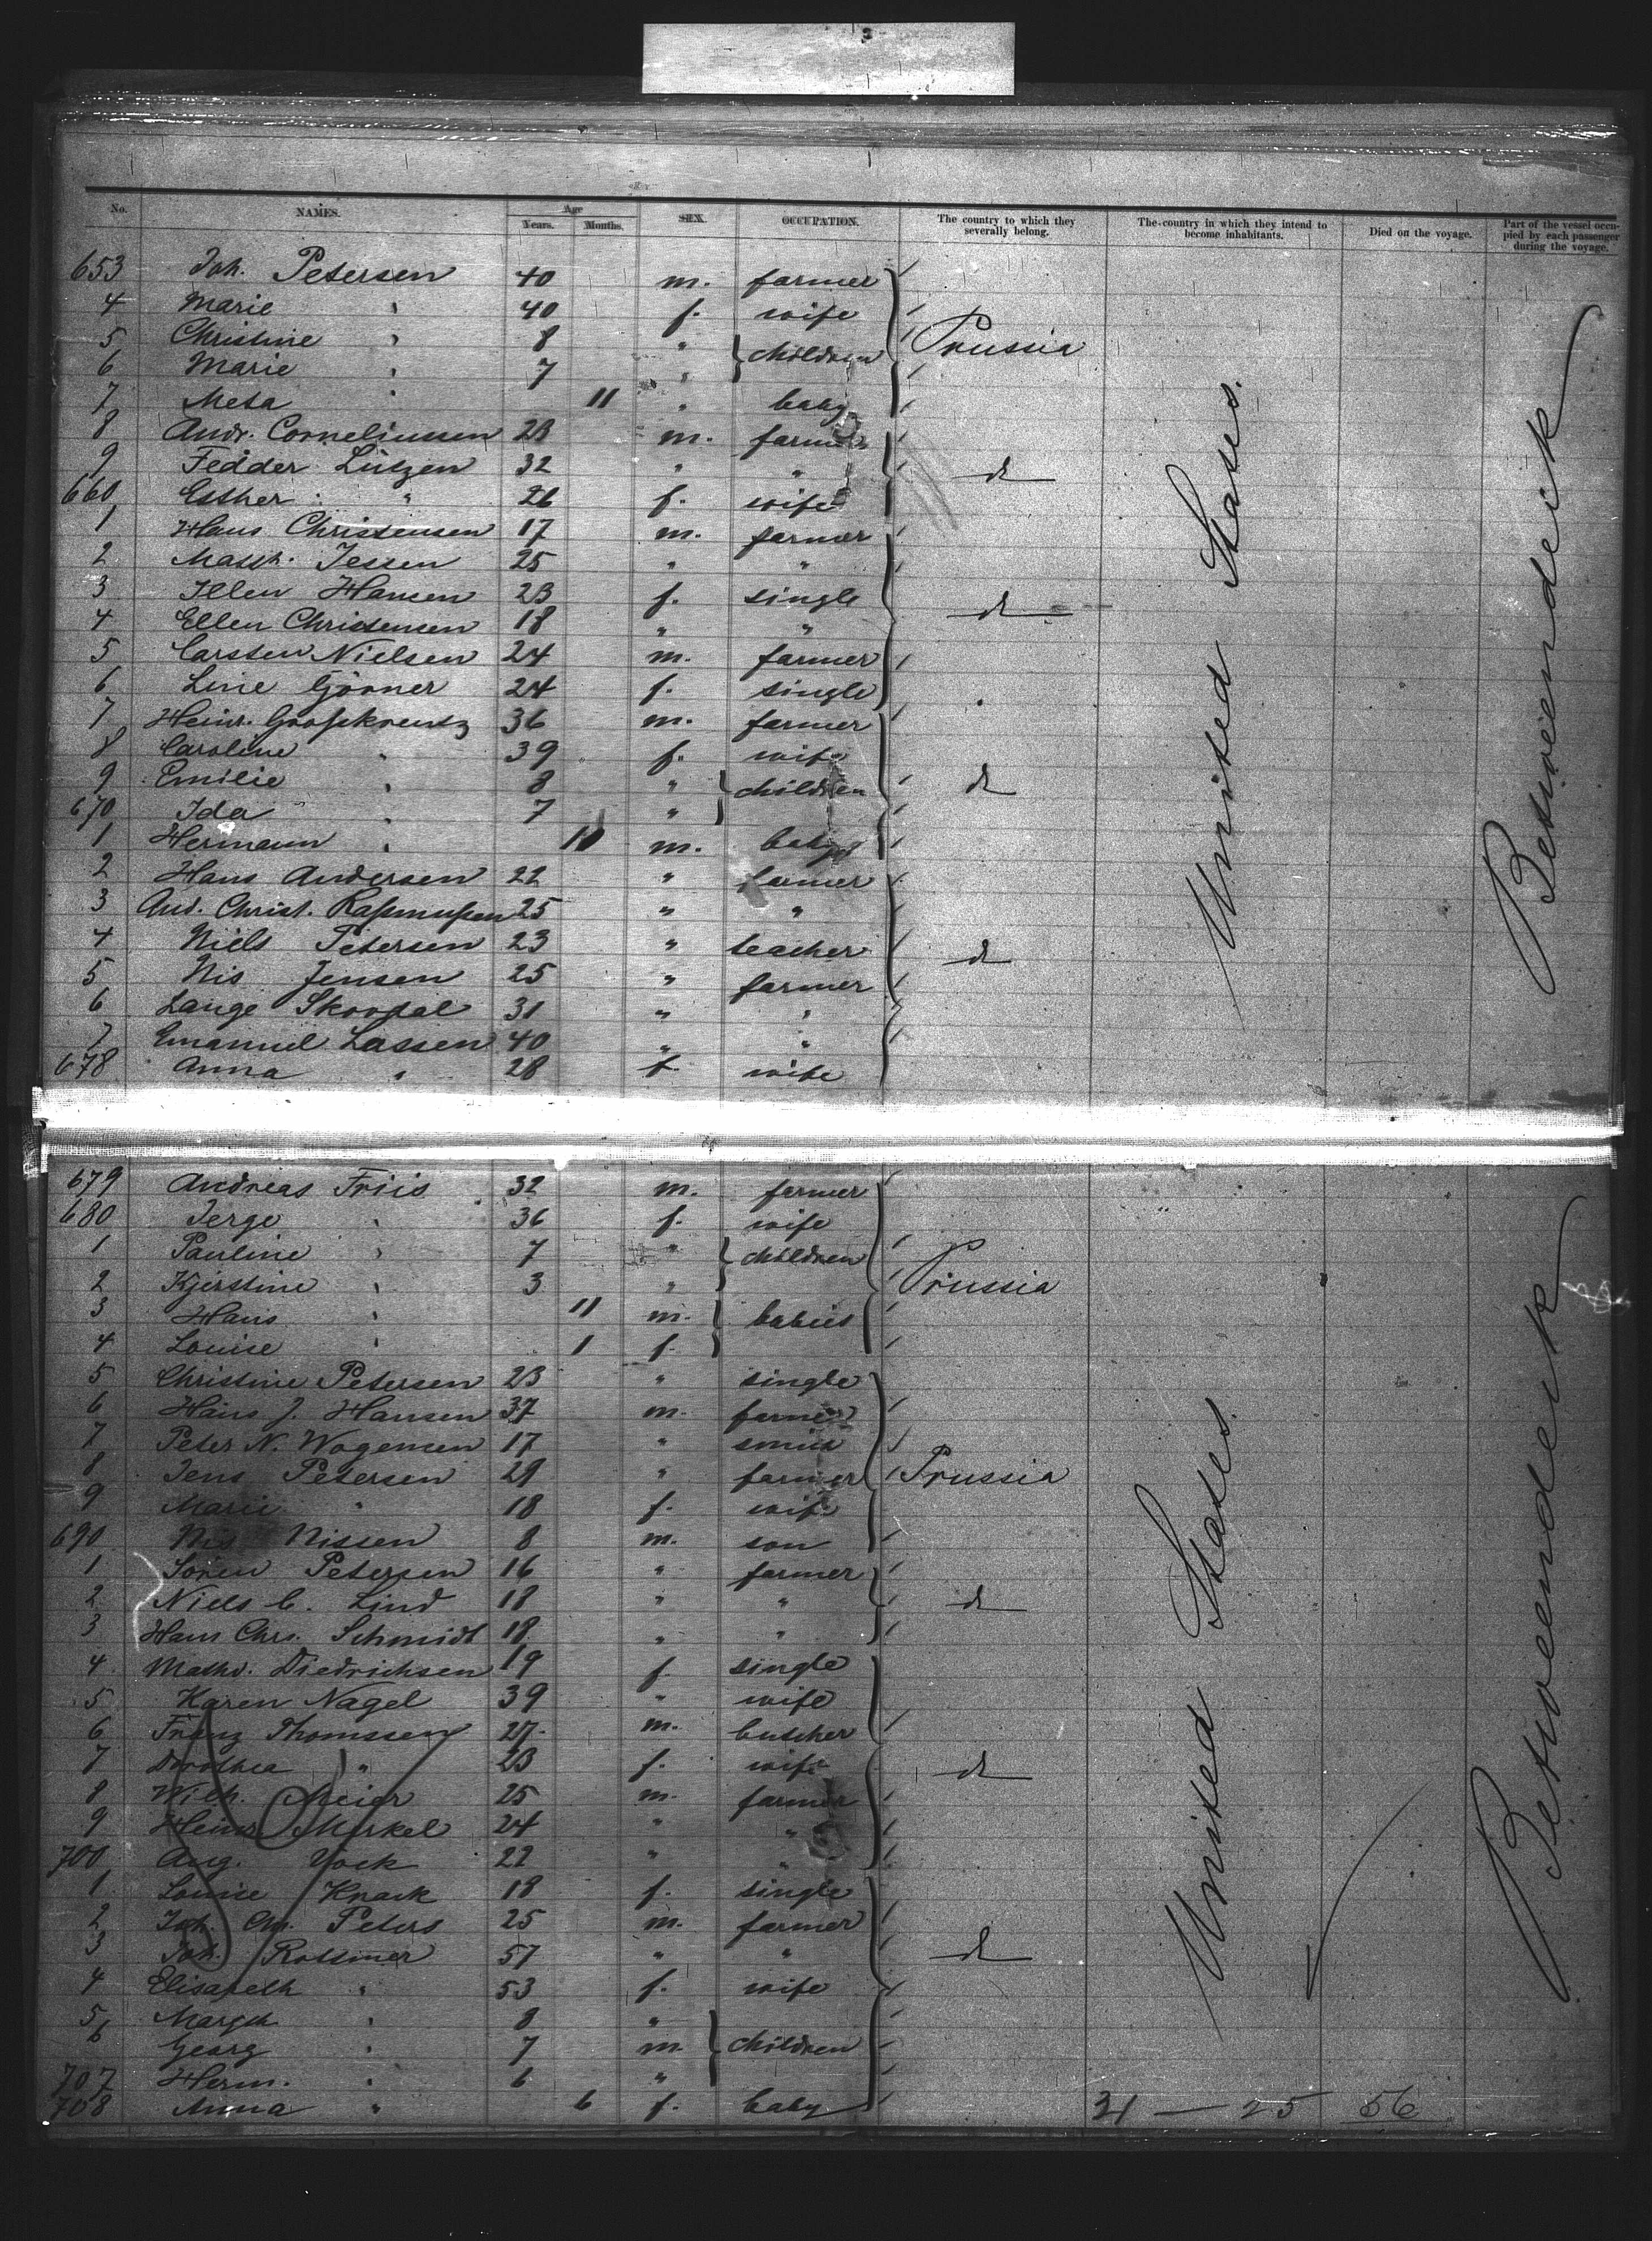 No. NAMES. Age Years. Months. SEX. OCCUPATION. The country to which they severally belong. The country in which they intend to become inhabitants. Died on the voyage. Part of the vessel occupied by each passenger during the voyage.
653 Joh. Petersen 40 m. farmer
4 Marie " 40 f. wife
5 Christine " 8 " children Prussia
6 Marie " 7 "
7 Meta " 11 " baby
8 Andr. Corneliussen 23 m. farmer
9 Fedder Lützen 32 " " do
660 Esther " 26 f. wife
1 Hans Christensen 17 m. farmer
2 Matth. Jessen 25 " "
3 Ellen Hansen 23 f. single do
4 Ellen Christensen 18 " "
5 Carsten Nielsen 24 m. farmer
6 Line Görner 24 f. single
7 Heinr. Großkreutz 36 m. farmer
8 Caroline " 39 f. wife
9 Emilie " 8 " children do
670 Ida " 7 "
1 Hermann " 10 m. baby
2 Hans Andersen 22 " farmer
3 And. Christ. Raßmußen 25 " "
4 Niels Petersen 23 " teacher do
5 Nis Jensen 25 " farmer
6 Lauge 31 " "
7 Emanuel Lassen 40 " "
678 Anna " 28 f. wife
United States.
Betweendeck
679 Andreas Friis 32 m. farmer
680 Jerge " 36 f. wife
1 Pauline " 7 " children
2 Kjerstine " 3 " Prussia
3 Hans " 11 m. babies
4 Louise " 1 f.
5 Christine Petersen 23 " single
6 Hans J. Hansen 37 m. farmer
7 Peter N. Wogensen 17 " smith
8 Jens Petersen 29 " farmer Prussia
9 Marie " 18 f. wife
690 Nis Nissen 8 m. son
1 Sören Petersen 16 " farmer
2 Niels C. Lind 18 " " do
3 Hans Chrs. Schmidt 18 " "
4 Diedrichsen 19 f. single
5 Karen Nagel 39 " wife
6 Franz Thomssen 27 m. butcher
7 Dorothea " 23 f. wife do
8 Wilh. Meier 25 m. farmer
9 Heinr. Merkel 24 " "
700 Aug. 22 " "
1 Louise Knack 18 f. single
2 Joh. Chr. Peters 25 m. farmer
3 Joh. Rottmer 57 " " do
4 Elisabeth " 53 f. wife
5 Margth. " 8 "
6 Georg " 7 m. children
707 Herm. " 6 "
708 Anna " 6 f. baby
United States.
Betweendeck
31 — 25 56